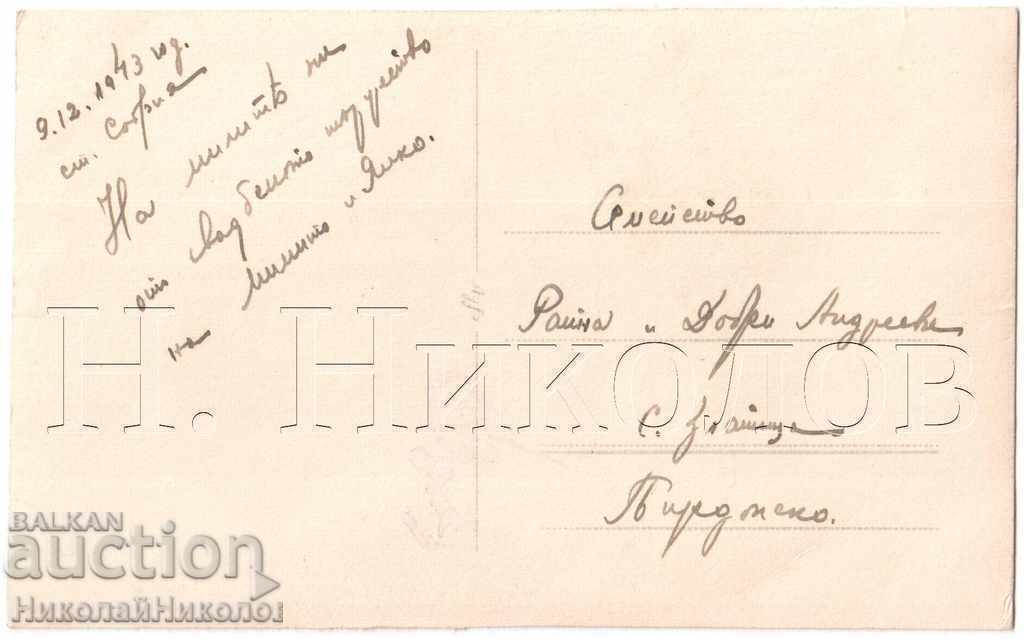 9.12.1943 год.
ст. София
На милитѣ ни
от свадбеното тържество
на милите и Янко.
Семейство
Райна и Добри Андрееви
с. Златица
Пирдопско.
Н. НИКОЛОВ
BALKAN
auction
НиколайНиколов